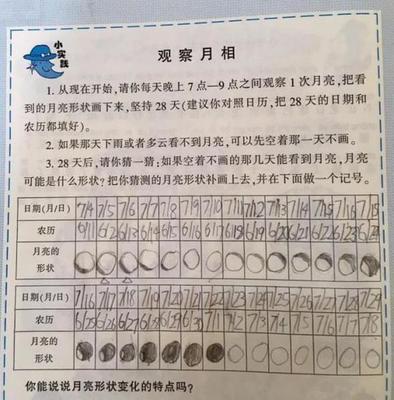 小实践
观察月相
1. 从现在开始,请你每天晚上7点—9点之间观察1次月亮,把看
到的月亮形状画下来,坚持28天(建议你对照日历,把28天的日期和
农历都填好)。
2. 如果那天下雨或者多云看不到月亮,可以先空着那一天不画。
3. 28天后,请你猜一猜:如果空着不画的那几天能看到月亮,月亮
可能是什么形状?把你猜测的月亮形状补画上去,并在下面做一个记号。
日期(月/日) 7/4 7/5 7/6 7/7 7/8 7/9 7/10 7/11 7/12 7/13 7/14 7/15
农历 6/11 6/12 6/13 6/14 6/15 6/16 6/17 6/18 6/19 6/20 6/21 6/22 6/23 6/24
月亮的
形状
日期(月/日) 7/16 7/17 7/18 7/19 7/20 7/21 7/22 7/23 7/24 7/25 7/26 7/27 7/28 7/29
农历 6/25 6/26 6/27 6/28 6/29 6/30 7/1 7/2 7/3 7/4 7/5 7/6 7/7 7/8
月亮的
形状
你能说说月亮形状变化的特点吗?